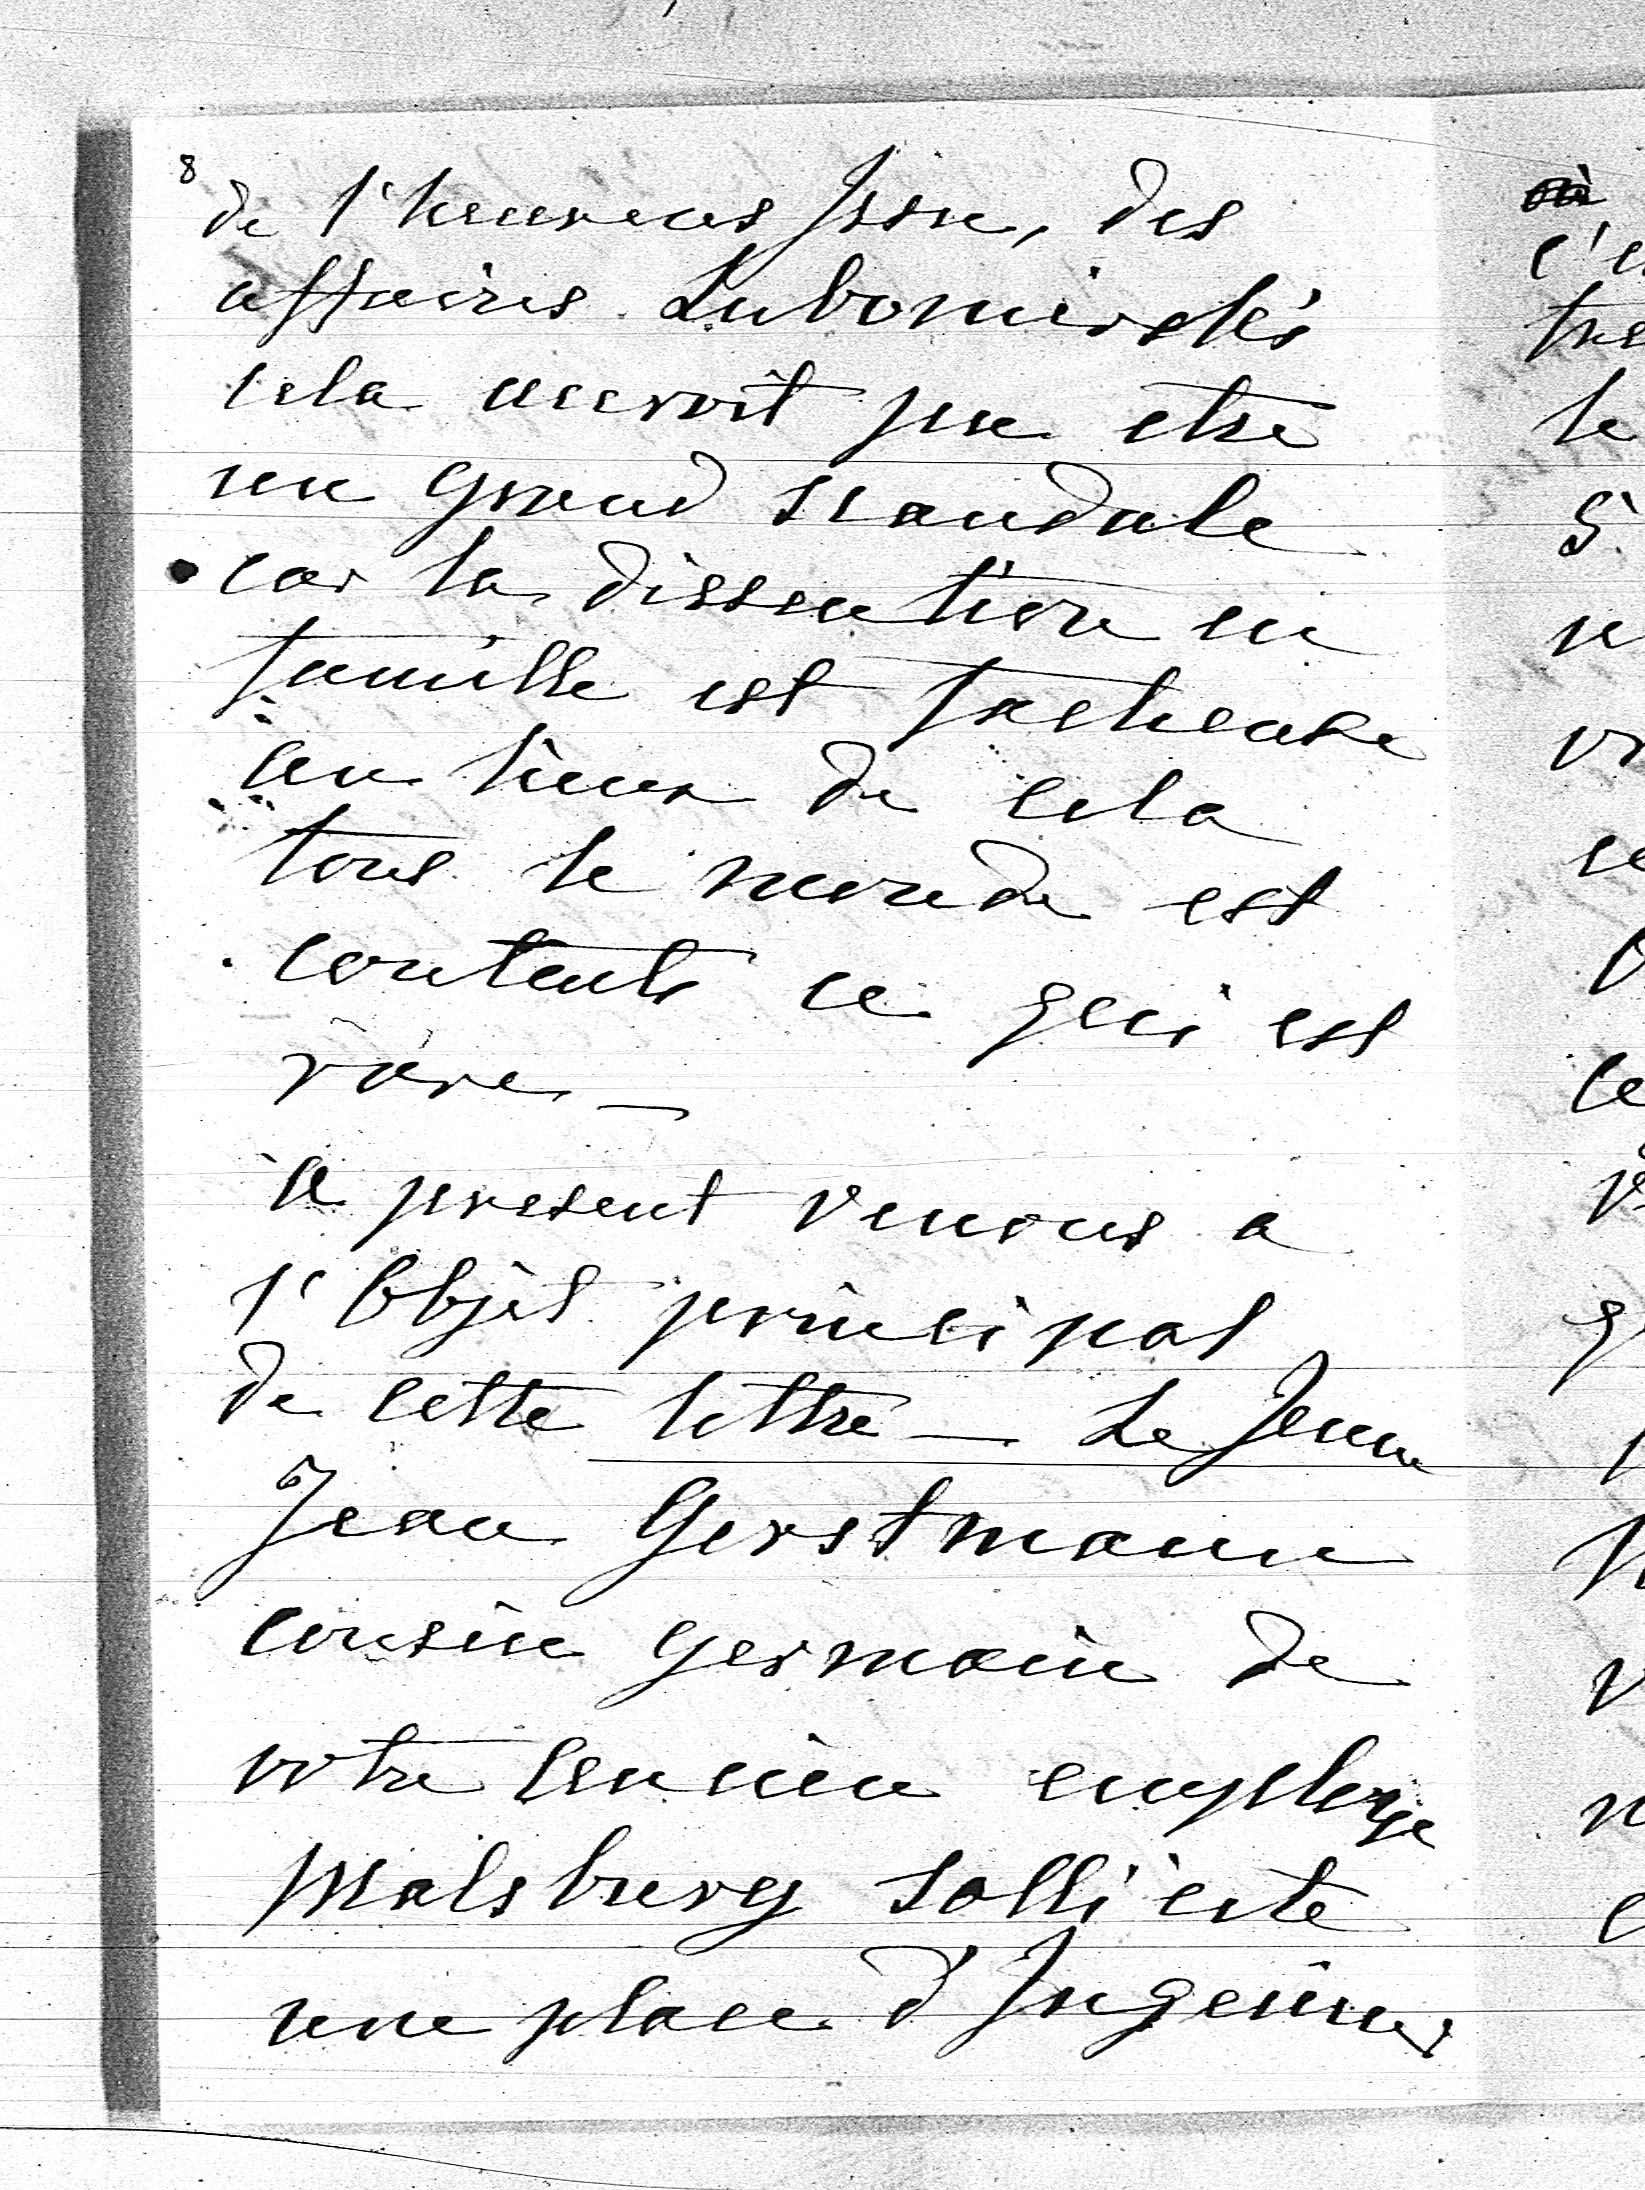 8
de l'heureus Issue, des
affaires Lubomirski's
cela auroit pue etre
un grand scandale
car la dissention en
famille est facheuse
au lieux de cela
tous le monde est
contents ce qui est
rare —
a present venons a
l'Objet principal
de cette lettre — Le Jeune
Jean Gerstmann
cousin germain de
votre ancien employe
Malsburg sollicite
une place d'Ingenieur